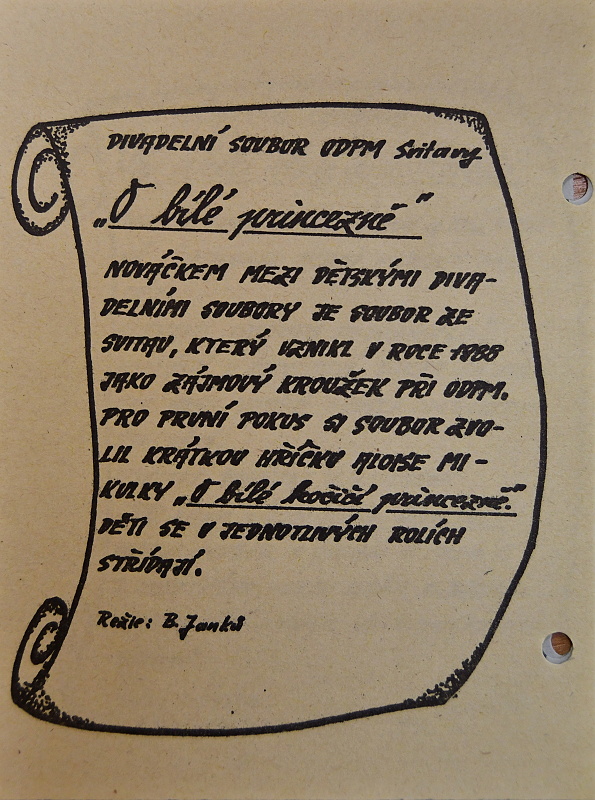 DIVADELNÍ SOUBOR ODPM Svitavy
„O bílé princezně“
NOVÁČKEM MEZI DĚTSKÝMI DIVA-
DELNÍMI SOUBORY JE SOUBOR ZE
SVITAV, KTERÝ VZNIKL V ROCE 1988
JAKO ZÁJMOVÝ KROUŽEK PŘI ODPM.
PRO PRVNÍ POKUS SI SOUBOR ZVO-
LIL KRÁTKOU HŘÍČKU ALOISE MI-
KULKY „O bílé kočičí princezně.“
DĚTI SE V JEDNOTLIVÝCH ROLÍCH
STŘÍDAJÍ.
Režie: B. Janků